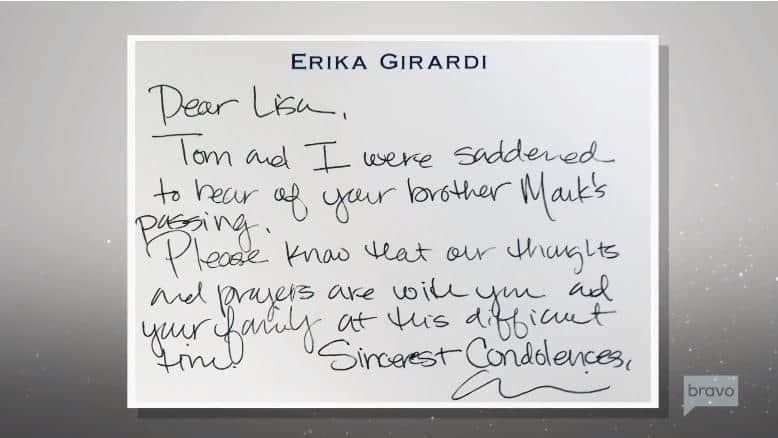 ERIKA GIRARDI
Dear Lisa,
Tom and I were saddened
to hear of your brother Mark's
passing.
Please know that our thoughts
and prayers are with you and
your family at this difficult
time
Sincerest Condolences,
bravo